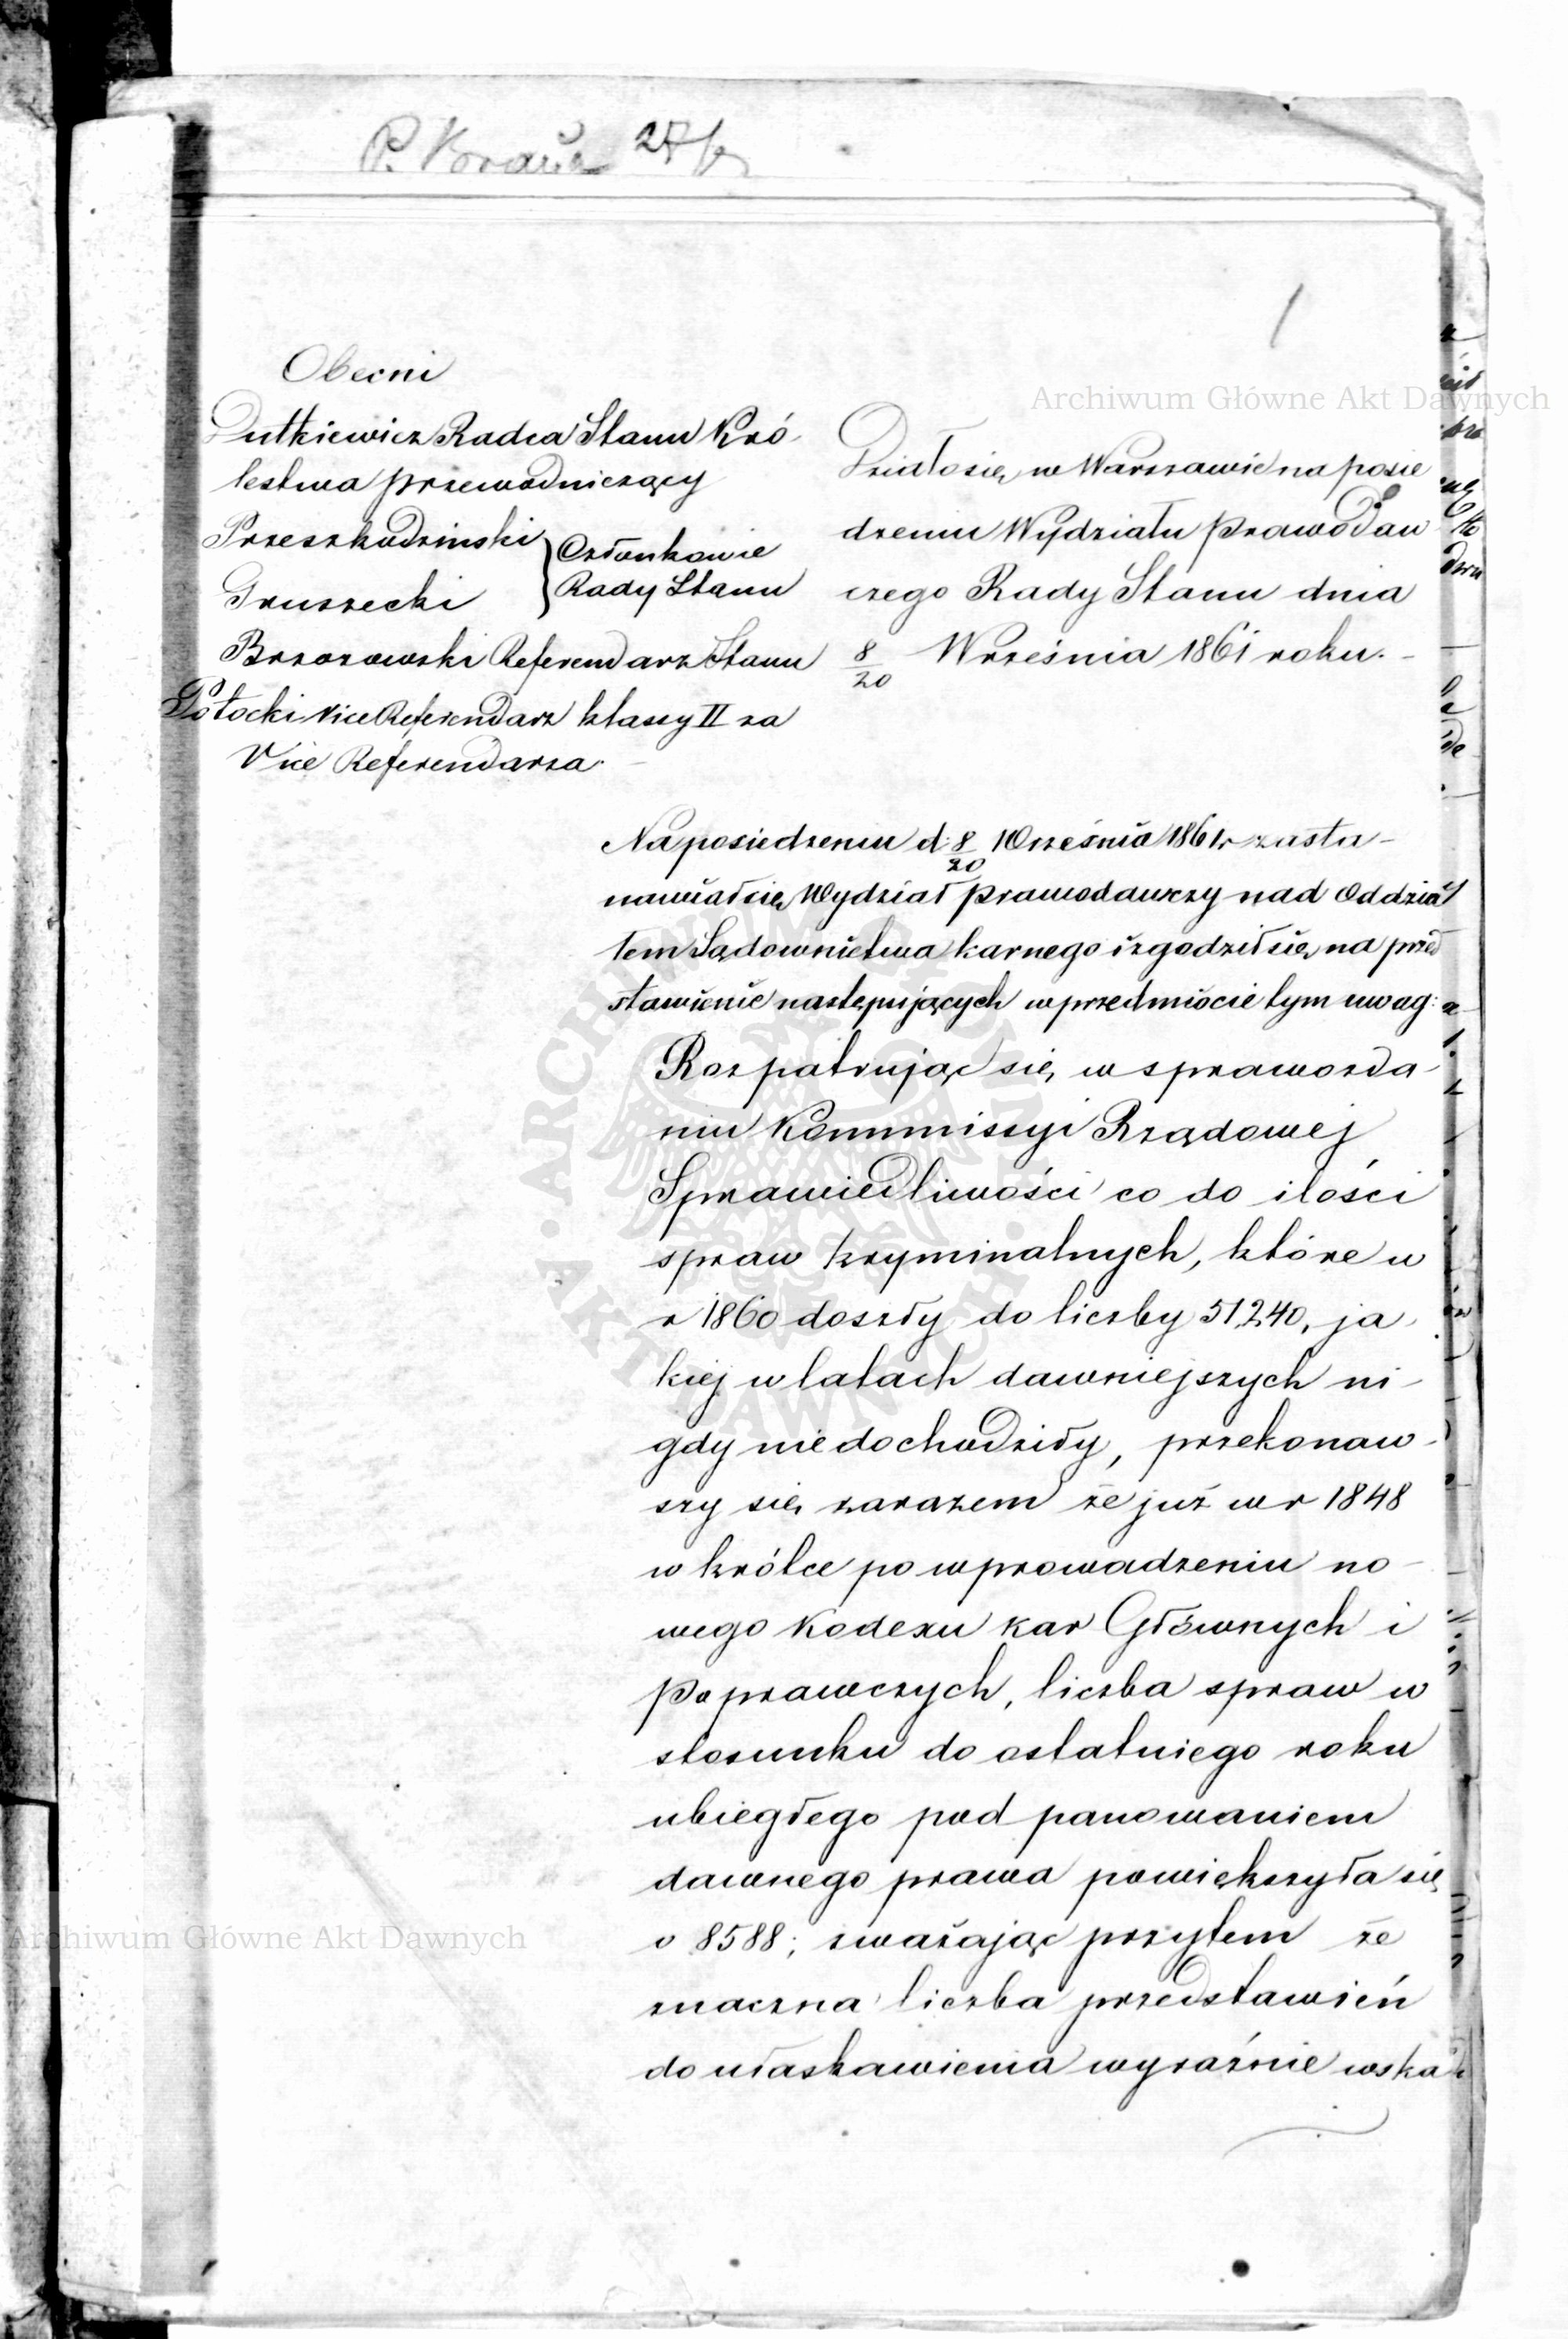 27
1
Obecni
Dutkiewicz Radca Stanu Kró
lestwa przewodniczący
Przeszkodzinski
Gruszecki
} Członkowie
Rady Stanu
Brzozowski Referendarz Stanu
Potocki Vice Referendarz klassy II za
Vice Referendarza.
Działo się w Warszawie na posie
dzeniu Wydziału Prawodaw
czego Rady Stanu dnia
8/20 Września 1861 roku. -
Na posiedzeniu d. 8/20 Września 1861 r zasta-
nawiał się Wydział prawodawczy nad Oddzia
łem Sądownictwa karnego i zgodził się na przed
stawienie następujących w przedmiocie tym uwag:
Rozpatrując się w sprawozda-
niu Kommissyi Rządowej
Sprawiedliwości co do ilości
spraw kryminalnych, które w
r 1860 doszły do liczby 51,240, ja-
kiej w latach dawniejszych ni-
gdy nie dochodziły, przekonaw-
szy się zarazem że już w r 1848
w krótce po wprowadzeniu no-
wego Kodexu kar Głównych i
Poprawczych, liczba spraw w
stosunku do ostatniego roku
ubiegłego pod panowaniem
dawnego prawa powiększyła się
o 8588; zważając przytem że
znaczna liczba przedstawień
do ułaskawienia wyraźnie wska
Archiwum Główne Akt Dawnych
Archiwum Główne Akt Dawnych
ARCHIWUM GŁÓWNE · AKT DAWNYCH ·